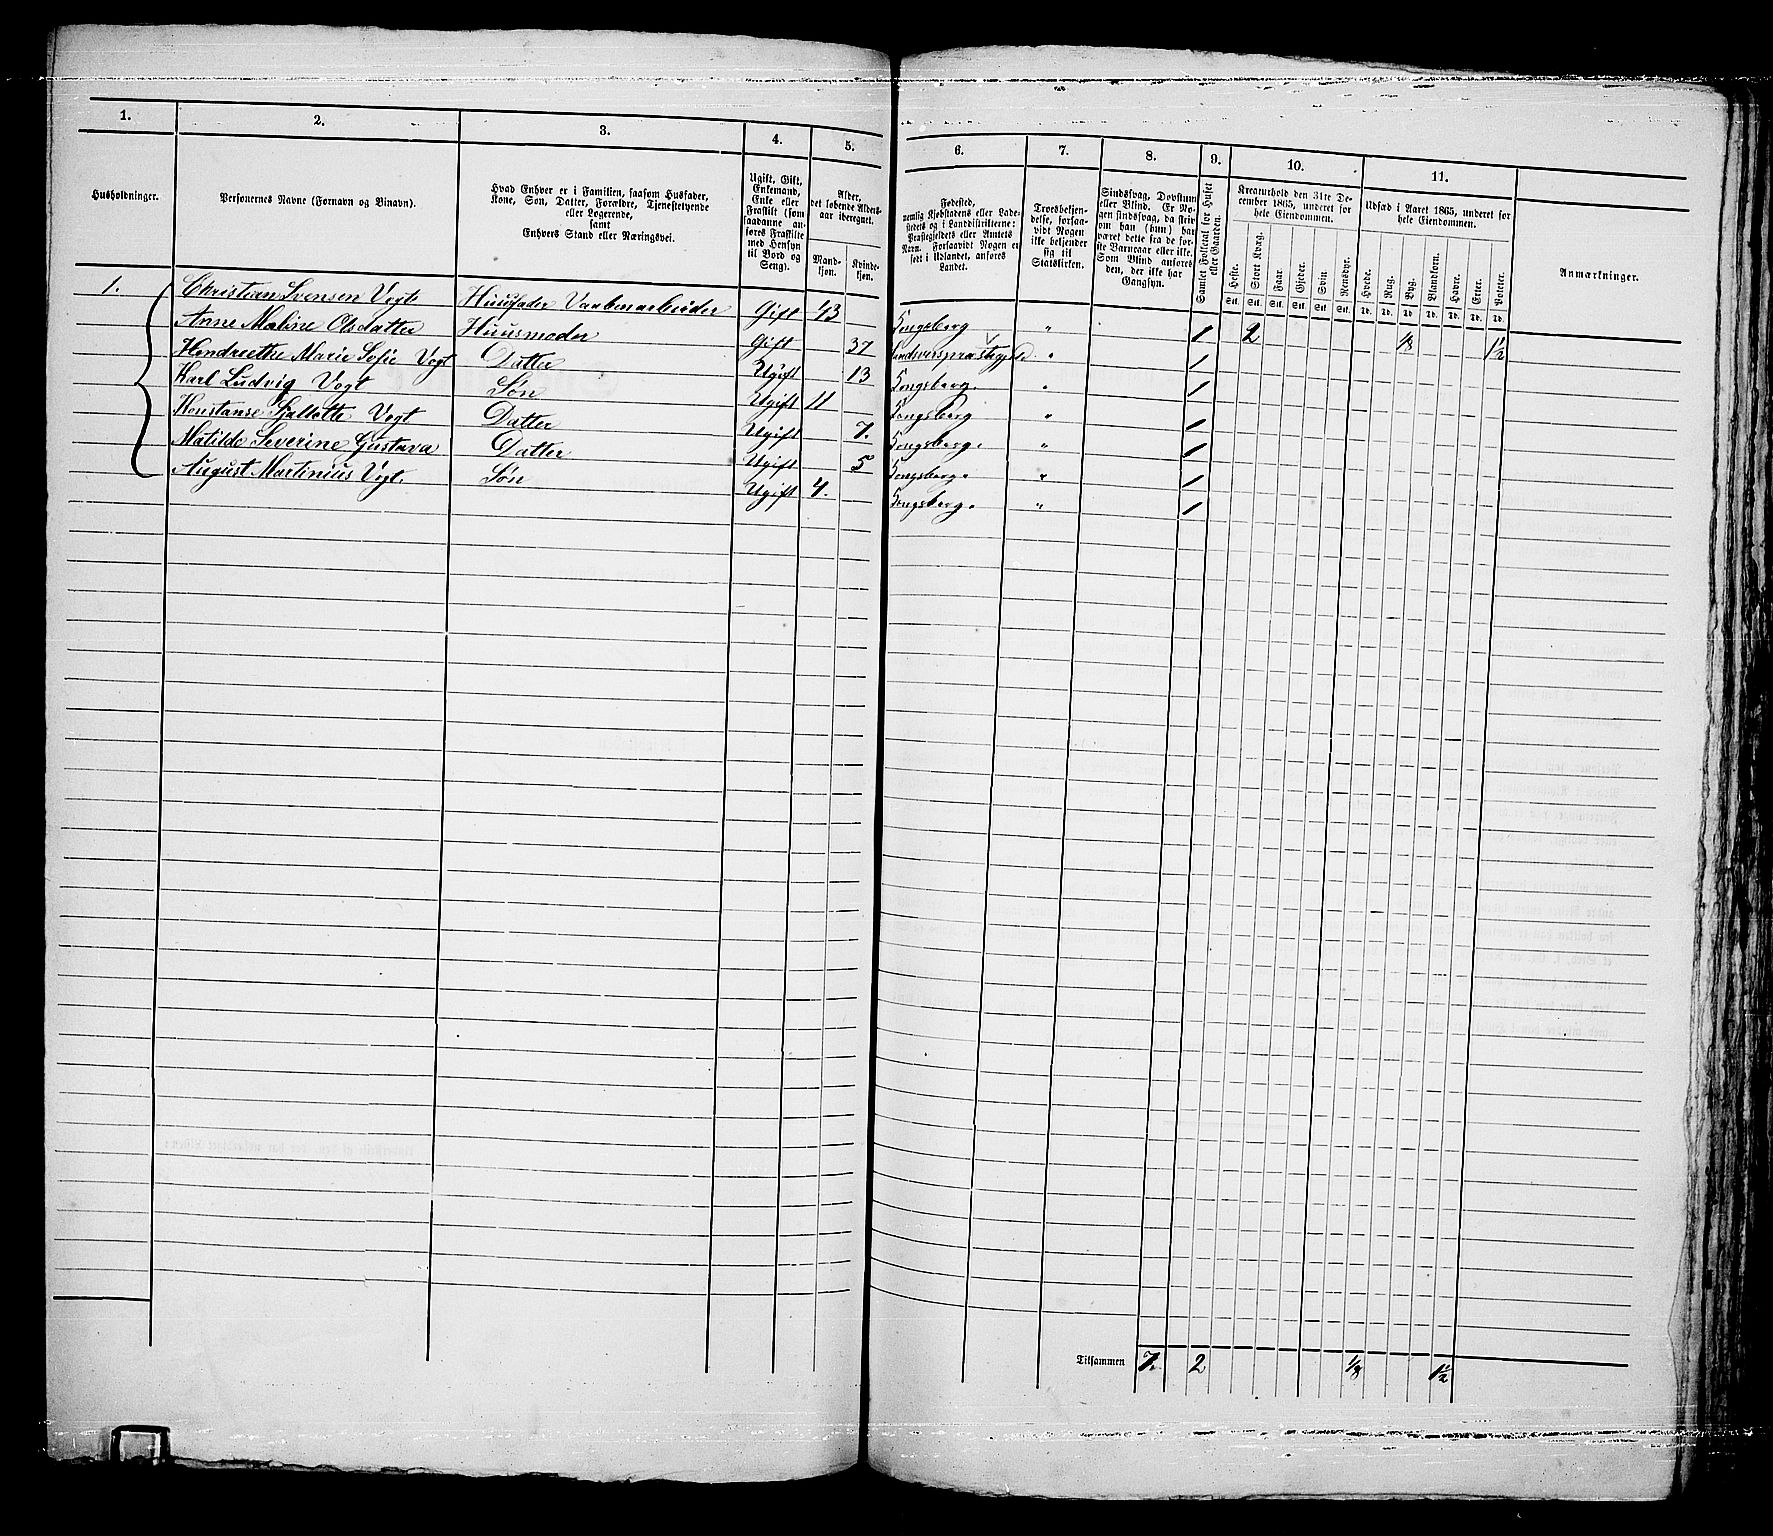 1. 2. 3. 4. 5. 6. 7. 8. 9. 10. 11.
Husholdninger.
Personernes Navne (Fornavn og Binavn).
Hvad Enhver er i Familien, saasom Husfader,
Kone, Søn, Datter, Forældre, Tjenestetyende
eller Logerende,
samt
Enhvers Stand eller Næringsvei.
Ugift, Gift,
Enkemand,
Enke eller
Fraskilt (som
saadanne an-
føres Fraskilte
med Hensyn
til Bord og
Seng).
Alder,
det løbende Alders-
aar iberegnet.
Mand-
kjøn.
Kvinde-
kjøn.
Fødested,
nemlig Kjøbstadens eller Lade-
stedets og i Landdistrikterne:
Præstegjeldets eller Amtets
Navn. Forsaavidt Nogen er
født i Udlandet, anføres
Landet.
Troesbekjen-
delse, forsaa-
vidt Nogen
ikke bekjender
sig til
Statskirken.
Sindssvag, Døvstum
eller Blind. Er No-
gen sindssvag, da skriv
om han (hun) har
været dette fra de før-
ste Barneaar eller ikke.
Som Blind anføres
den, der ikke har
Gangsyn.
Samlet Folketal for Huset
eller Gaarden.
Kreaturhold den 31te De-
cember 1865, underet for
hele Eiendommen.
Heste. Stort Kvæg. Faar. Gjeder. Svin. Rensdyr.
Stk. Stk. Stk. Stk. Stk. Stk.
Udsæd i Aaret 1865, underet for
hele Eiendommen.
Hvede. Rug. Byg. Blandkorn. Havre. Erter. Poteter.
Td. Td. Td. Td. Td. Td. Td.
Anmærkninger.
1. Christian Svensen Vogt Huusfader Vaabenarbeider Gift 43 Kongsberg " 1 2 1/8 1 1/2
Anne Maline Olsdatter Huusmoder Gift 37 " 1
Hendreethe Marie Sofie Vogt Datter Ugift 13 Kongsberg. " 1
Karl Ludvig Vogt Søn Ugift 11 Kongsberg " 1
Konstanse Sjallotte Vogt Datter Ugift 7. Kongsberg. " 1
Matilde Severine Gustava Datter Ugift 5 Kongsberg. " 1
August Martinius Vogt. Søn Ugift 4. Kongsberg. " 1
Tilsammen 7. 2 1/8 1 1/2